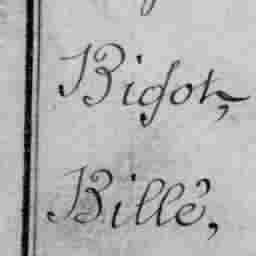 Bigot,
Billé,